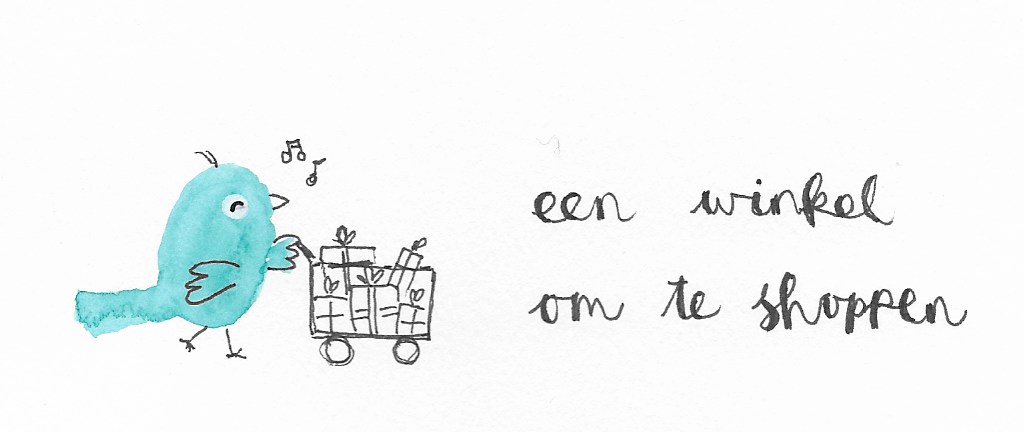 een winkel
om te shoppen